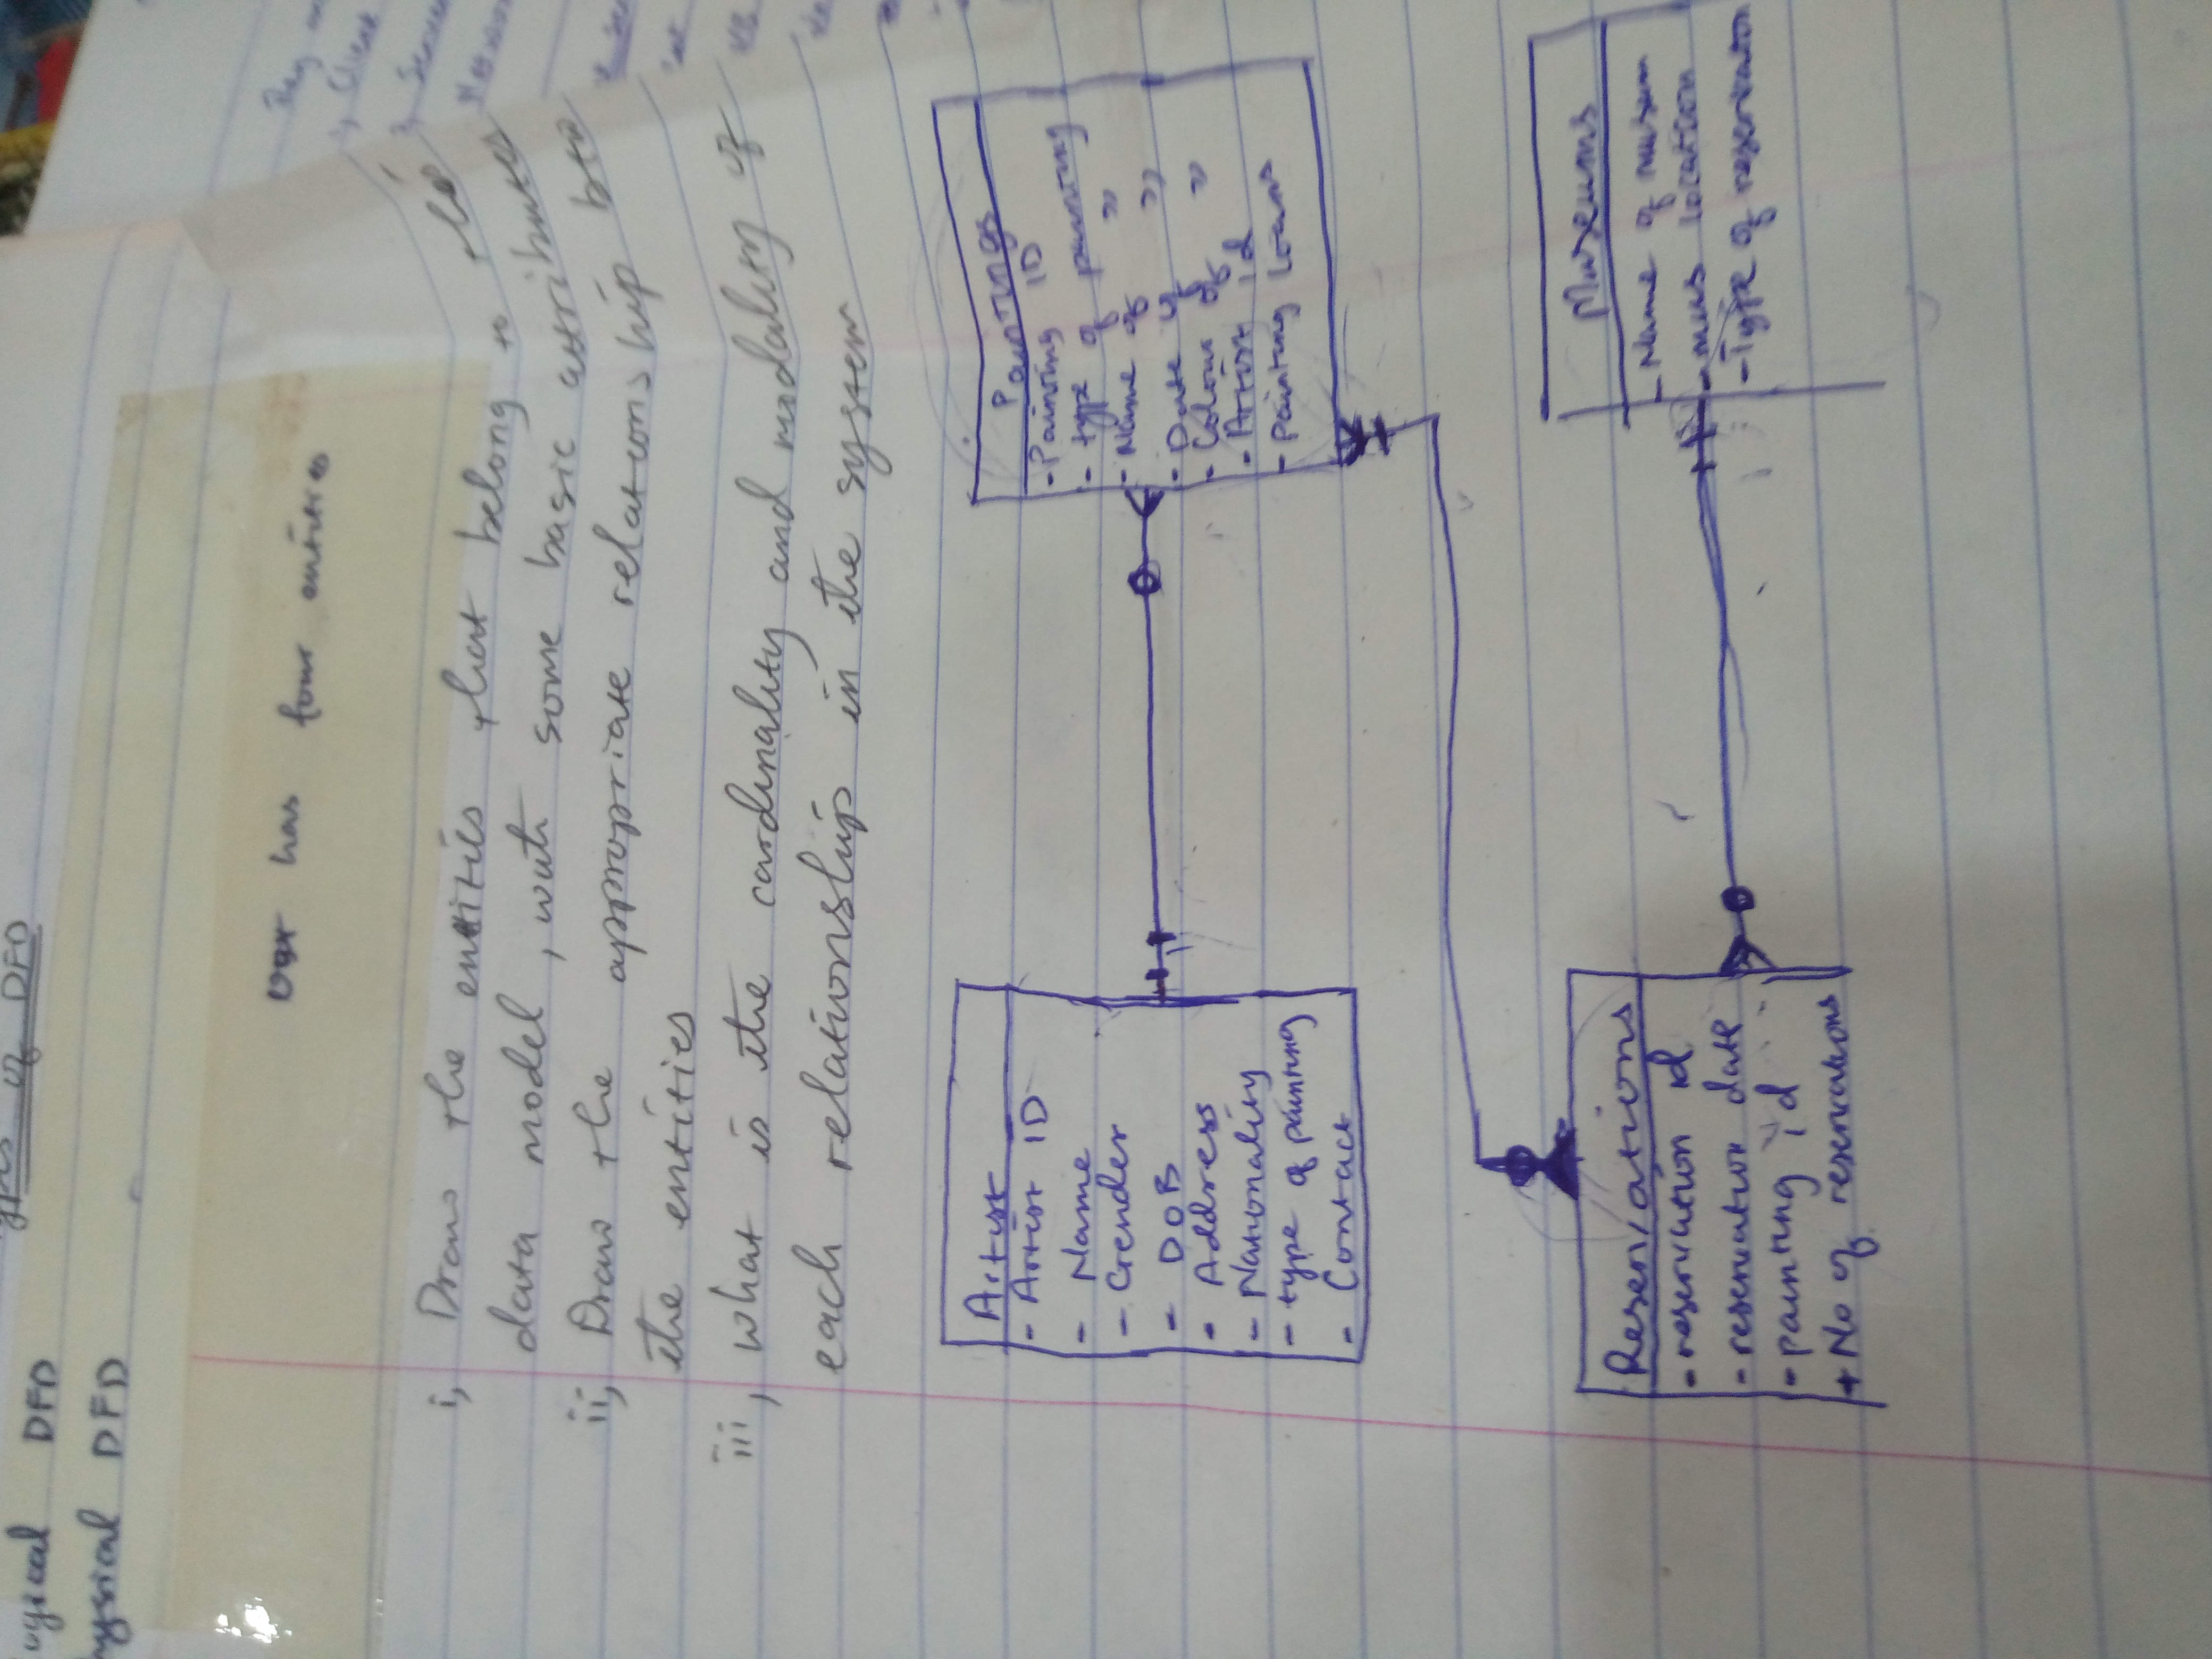 ypes of DFD
ogical DFD
hysical DFD
has four entities
i, Draw the entities that belong to the
data model, with some basic attributes
ii, Draw the appropriate relationship btw
the entities
iii, what is the cardinality and modality of
each relationship in the system
Artist
- Artist ID
- Name
- Gender
- DOB
- Address
- Nationality
- type of painting
- Contact
Paintings
- Painting ID
- type of painting
- Name of "
- Date of "
- Colour of "
- Artist id
- Painting loans
Reservations
- reservation id
- reservation date
- painting id
+ No of reservations
Museums
- Name of musem
- mus location
- Type of reservation
Client